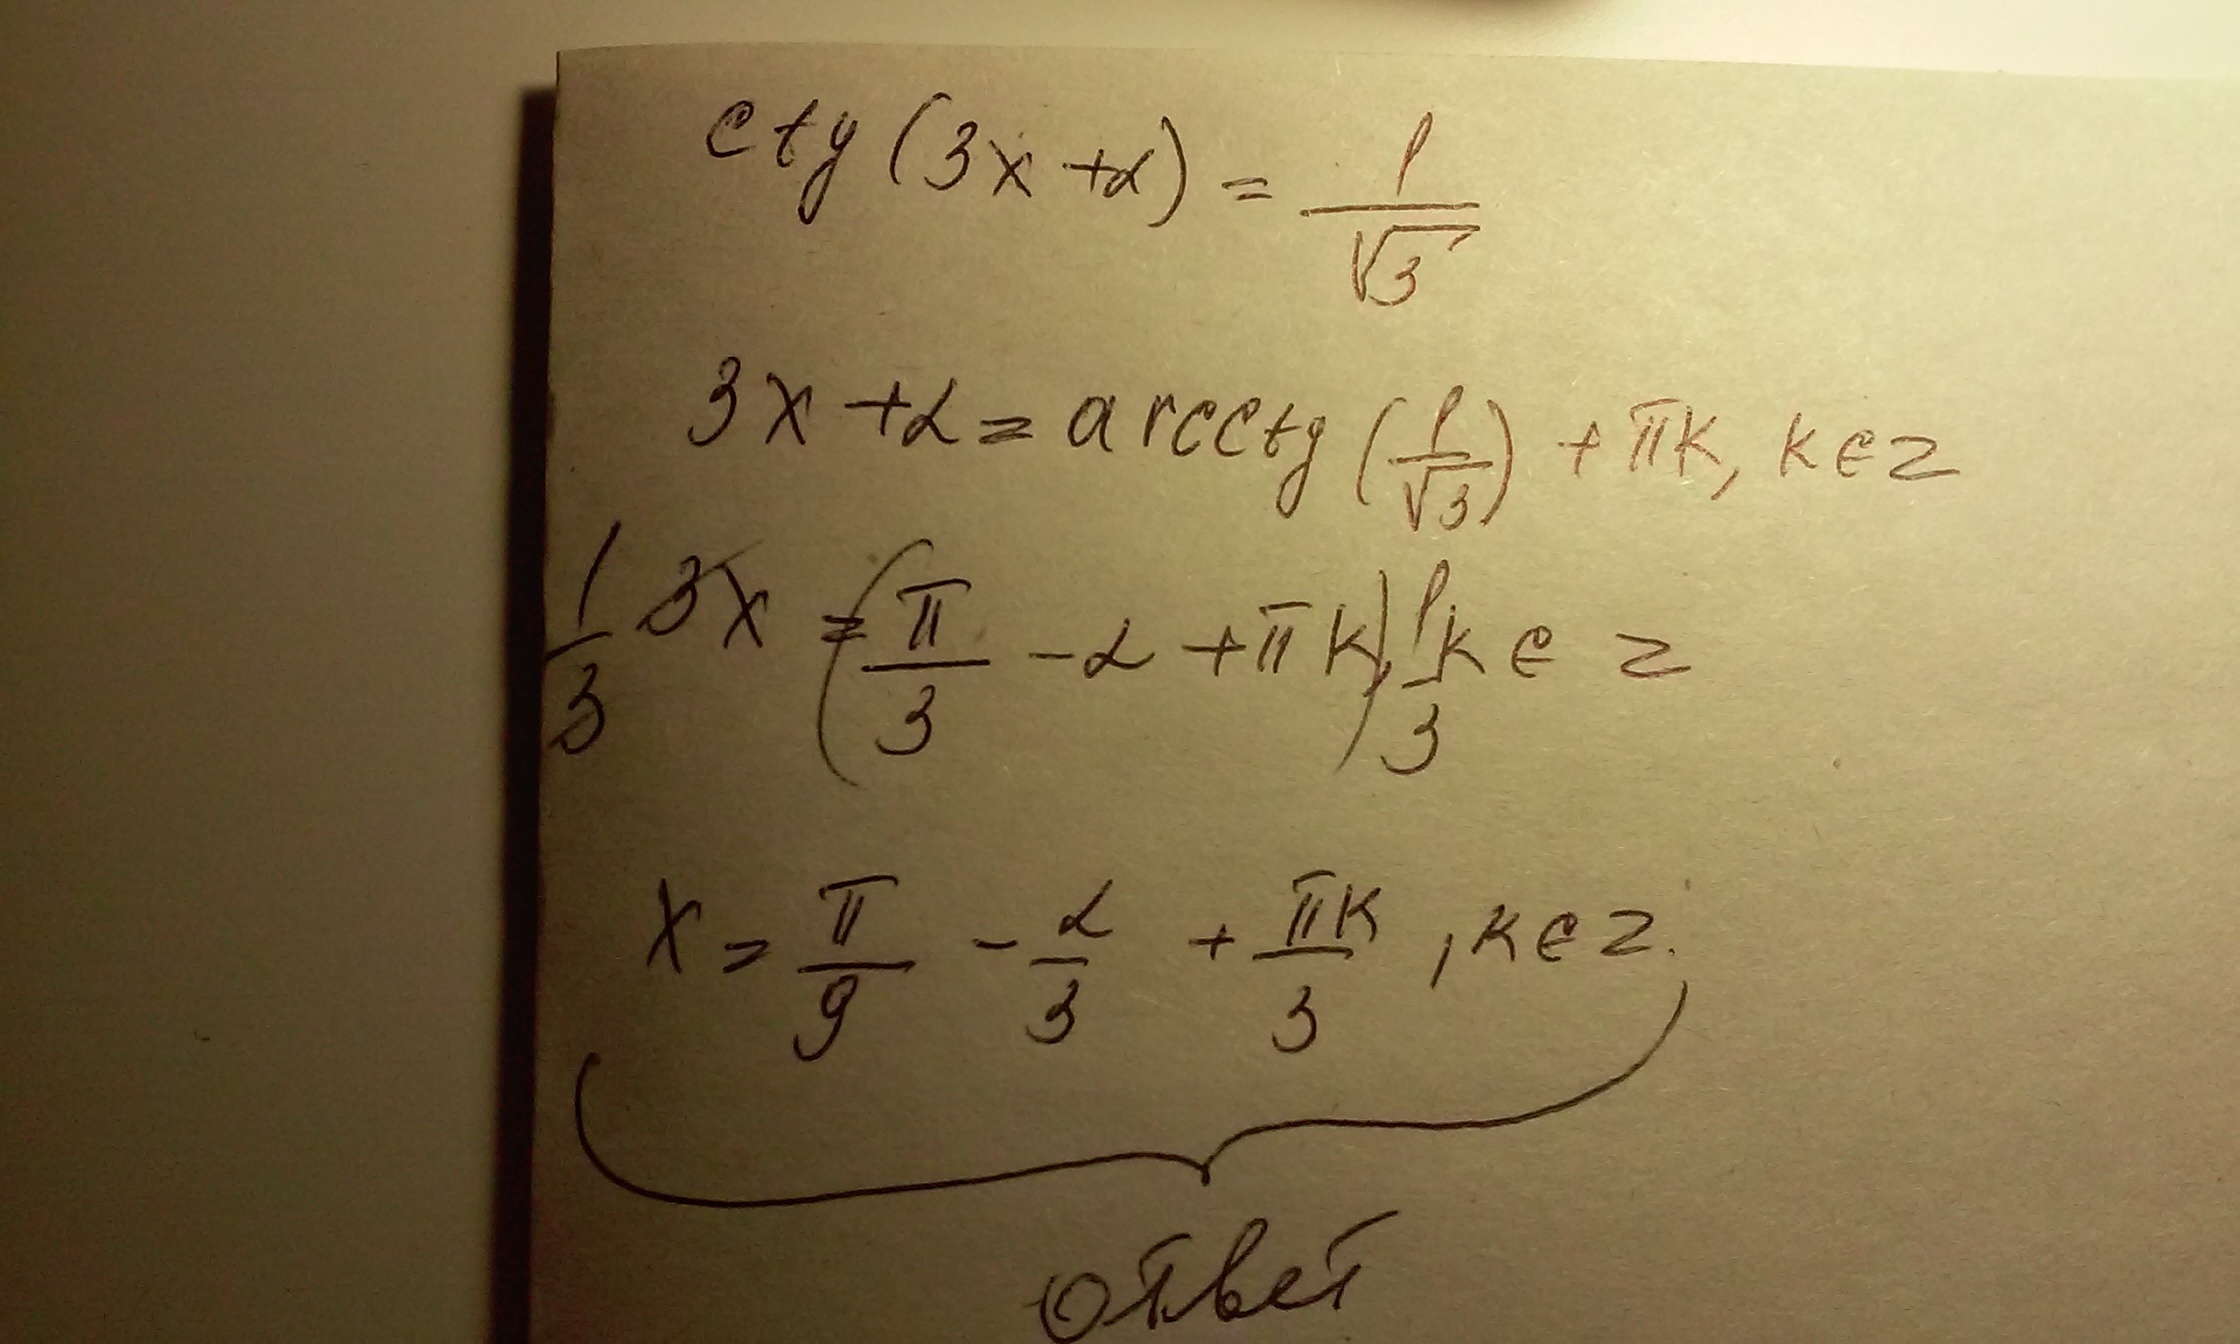 ctg (3x + α) = 1/√3
3x + α = arcctg (1/√3) + πk, k ∈ z
1/3 3x = (π/3 - α + πk) 1/3, k ∈ z
x = π/9 - α/3 + πk/3, k ∈ z.
ответ